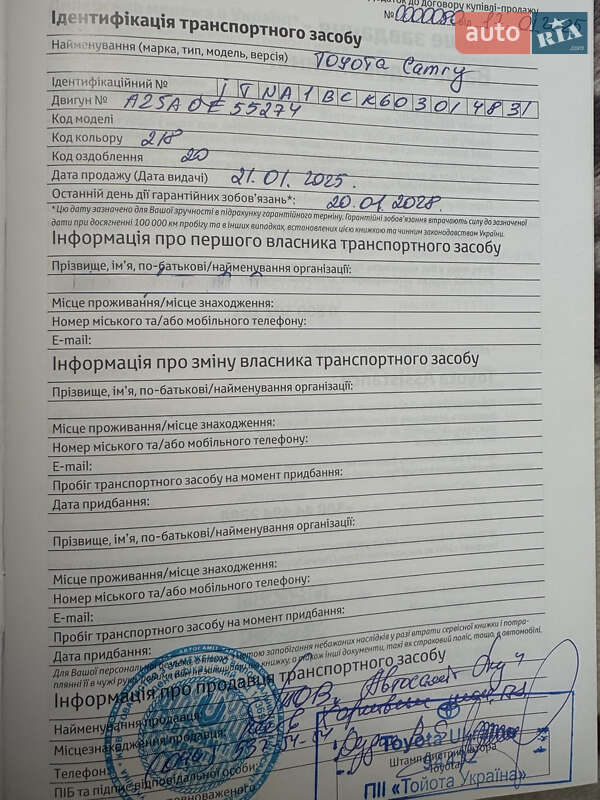 до договору купівлі-продажу
auto RIA.com
Ідентифікація транспортного засобу
Найменування (марка, тип, модель, версія) TOYOTA Camry
Ідентифікаційний № JTNA1BCK603014831
Двигун № A25A 55274
Код моделі
Код кольору 218
Код оздоблення 20
Дата продажу (Дата видачі) 21.01.2025.
Останній день дії гарантійних зобов'язань*: 20.01.2028.
*Цю дату зазначено для Вашої зручності в підрахунку гарантійного терміну. Гарантійні зобов'язання втрачають силу до зазначеної
дати при досягненні 100 000 км пробігу та в інших випадках, встановлених цією книжкою та чинним законодавством України.
Інформація про першого власника транспортного засобу
Прізвище, ім'я, по-батькові/найменування організації:
Місце проживання/місце знаходження:
Номер міського та/або мобільного телефону:
E-mail:
Інформація про зміну власника транспортного засобу
Прізвище, ім'я, по-батькові/найменування організації:
Місце проживання/місце знаходження:
Номер міського та/або мобільного телефону:
E-mail:
Пробіг транспортного засобу на момент придбання:
Дата придбання:
Прізвище, ім'я, по-батькові/найменування організації:
Місце проживання/місце знаходження:
Номер міського та/або мобільного телефону:
E-mail:
Пробіг транспортного засобу на момент придбання:
Дата придбання:
Для Вашої персональної запобігання небажаних наслідків у разі втрати сервісної книжки і потра-
плянні її в чужі руки книжку, а також інші документи, такі як страховий поліс, тощо, в автомобілі.
Інформація про продавця транспортного засобу
Найменування продавця: ТОВ Автосаміт
Місцезнаходження продавця:
Телефон:
Toyota Ukraine
Штамп дистриб'ютора
Toyota
ПІБ та підпис відповідальної особи:
ПІІ «Тойота Україна»